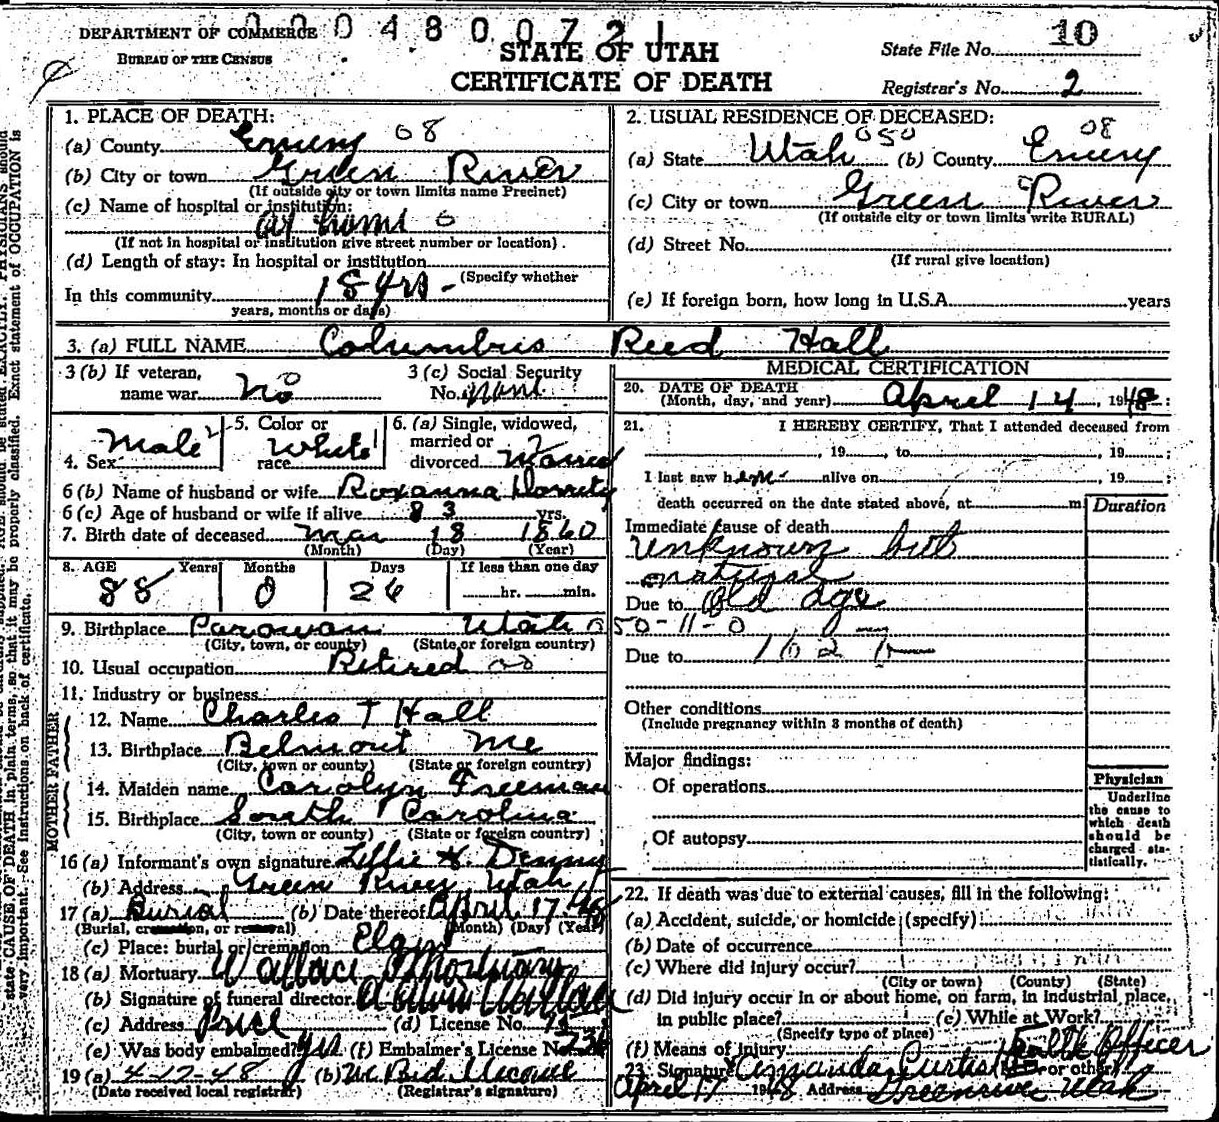 DEPARTMENT OF COMMERCE
BUREAU OF THE CENSUS
0 0 0 4 8 0 0 7 2 1
STATE OF UTAH
CERTIFICATE OF DEATH
State File No. 10
Registrar's No. 2
1. PLACE OF DEATH:
(a) County Emery 08
(b) City or town Green River
(If outside city or town limits name Precinct)
(c) Name of hospital or institution:
at home 0
(If not in hospital or institution give street number or location)
(d) Length of stay: In hospital or institution
(Specify whether
In this community 18 yrs -
years, months or days)
2. USUAL RESIDENCE OF DECEASED:
(a) State Utah 050 (b) County Emery 08
(c) City or town Green River
(If outside city or town limits write RURAL)
(d) Street No.
(If rural give location)
(e) If foreign born, how long in U.S.A. years
3. (a) FULL NAME Columbus Reed Hall
3 (b) If veteran, name war no
3 (c) Social Security No. none
4. Sex Male 2
5. Color or race White 1
6. (a) Single, widowed, married or divorced Married 2
6 (b) Name of husband or wife Roxanna Dorrity
6 (c) Age of husband or wife if alive 83 yrs.
7. Birth date of deceased Mar 18 1860
(Month) (Day) (Year)
8. AGE Years Months Days If less than one day
88 0 26 hr. min.
9. Birthplace Parowan Utah 0
(City, town, or county) (State or foreign country)
10. Usual occupation Retired
11. Industry or business
FATHER
12. Name Charles T Hall
13. Birthplace Belmont Me
(City, town or county) (State or foreign country)
MOTHER
14. Maiden name Carolyn Freeman
15. Birthplace South Carolina
(City, town or county) (State or foreign country)
16 (a) Informant's own signature Effie H. Denny
(b) Address Green River, Utah
17 (a) Burial (b) Date thereof April 17 48
(Burial, cremation, or removal) (Month) (Day) (Year)
(c) Place: burial or cremation Elgin
18 (a) Mortuary Wallace Mortuary
(b) Signature of funeral director Wallace
(c) Address Price (d) License No.
(e) Was body embalmed? yes (f) Embalmer's License No.
19 (a) 4-17-48 (b)
(Date received local registrar) (Registrar's signature)
MEDICAL CERTIFICATION
20. DATE OF DEATH
(Month, day, and year) April 14, 1948
21. I HEREBY CERTIFY, That I attended deceased from
, 19 , to , 19 ;
I last saw h alive on , 19 ;
death occurred on the date stated above, at m.
Duration
Immediate cause of death
Unknown but
natural
Due to Old age
50-11-0
Due to 162
Other conditions
(Include pregnancy within 3 months of death)
Major findings:
Of operations
Of autopsy
Physician
Underline the cause to which death should be charged statistically.
22. If death was due to external causes, fill in the following:
(a) Accident, suicide, or homicide (specify)
(b) Date of occurrence
(c) Where did injury occur?
(City or town) (County) (State)
(d) Did injury occur in or about home, on farm, in industrial place,
in public place? (e) While at Work?
(Specify type of place)
(f) Means of Injury Health Officer
23. Signature Amanda Curtis or other)
April 17 1948 Address Greenriver Utah
state CAUSE OF DEATH in plain terms, so that it may be properly classified. Exact statement of OCCUPATION is
very important. See instructions on back of certificate.